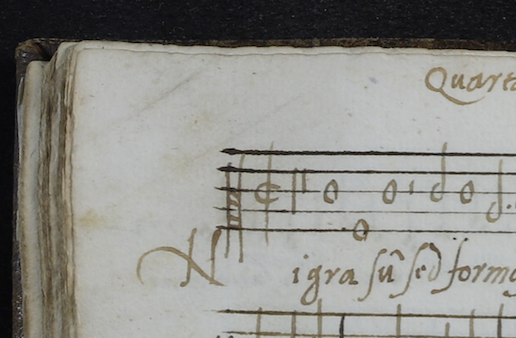 Quarta
Nigra sũ sed form